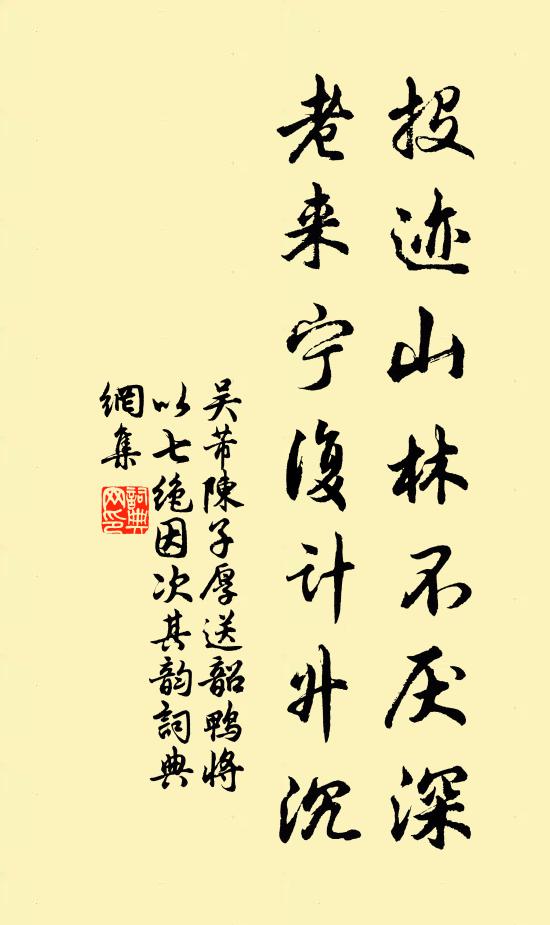 投迹山林不厌深
老来宁复计升沉
吴芾陳子厚送韶鴨將
以七绝因次其韵詞典
網集
詞典
网印